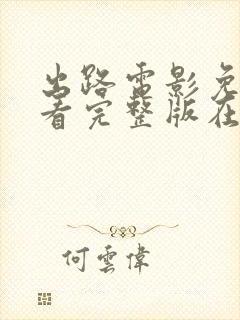 出路電影免
看完整版在
何雲偉